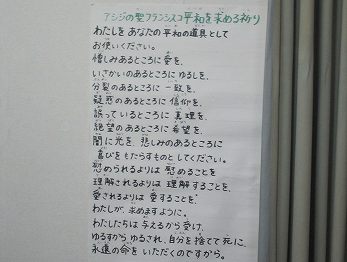 アシジの聖フランシスコ平和を求める祈り
わたしをあなたの平和の道具として
お使いください。
憎しみあるところに愛を、
いさかいのあるところにゆるしを、
分裂のあるところに一致を、
疑惑のあるところに信仰を、
誤っているところに真理を、
絶望のあるところに希望を、
闇に光を、悲しみのあるところに
喜びをもたらすものとしてください。
慰められるよりは慰めることを
理解されるよりは理解することを、
愛されるよりは愛することを、
わたしが、求めますように。
わたしたちは与えるから受け、
ゆるすから、ゆるされ、自分を捨てて死に、
永遠の命をいただくのですから。